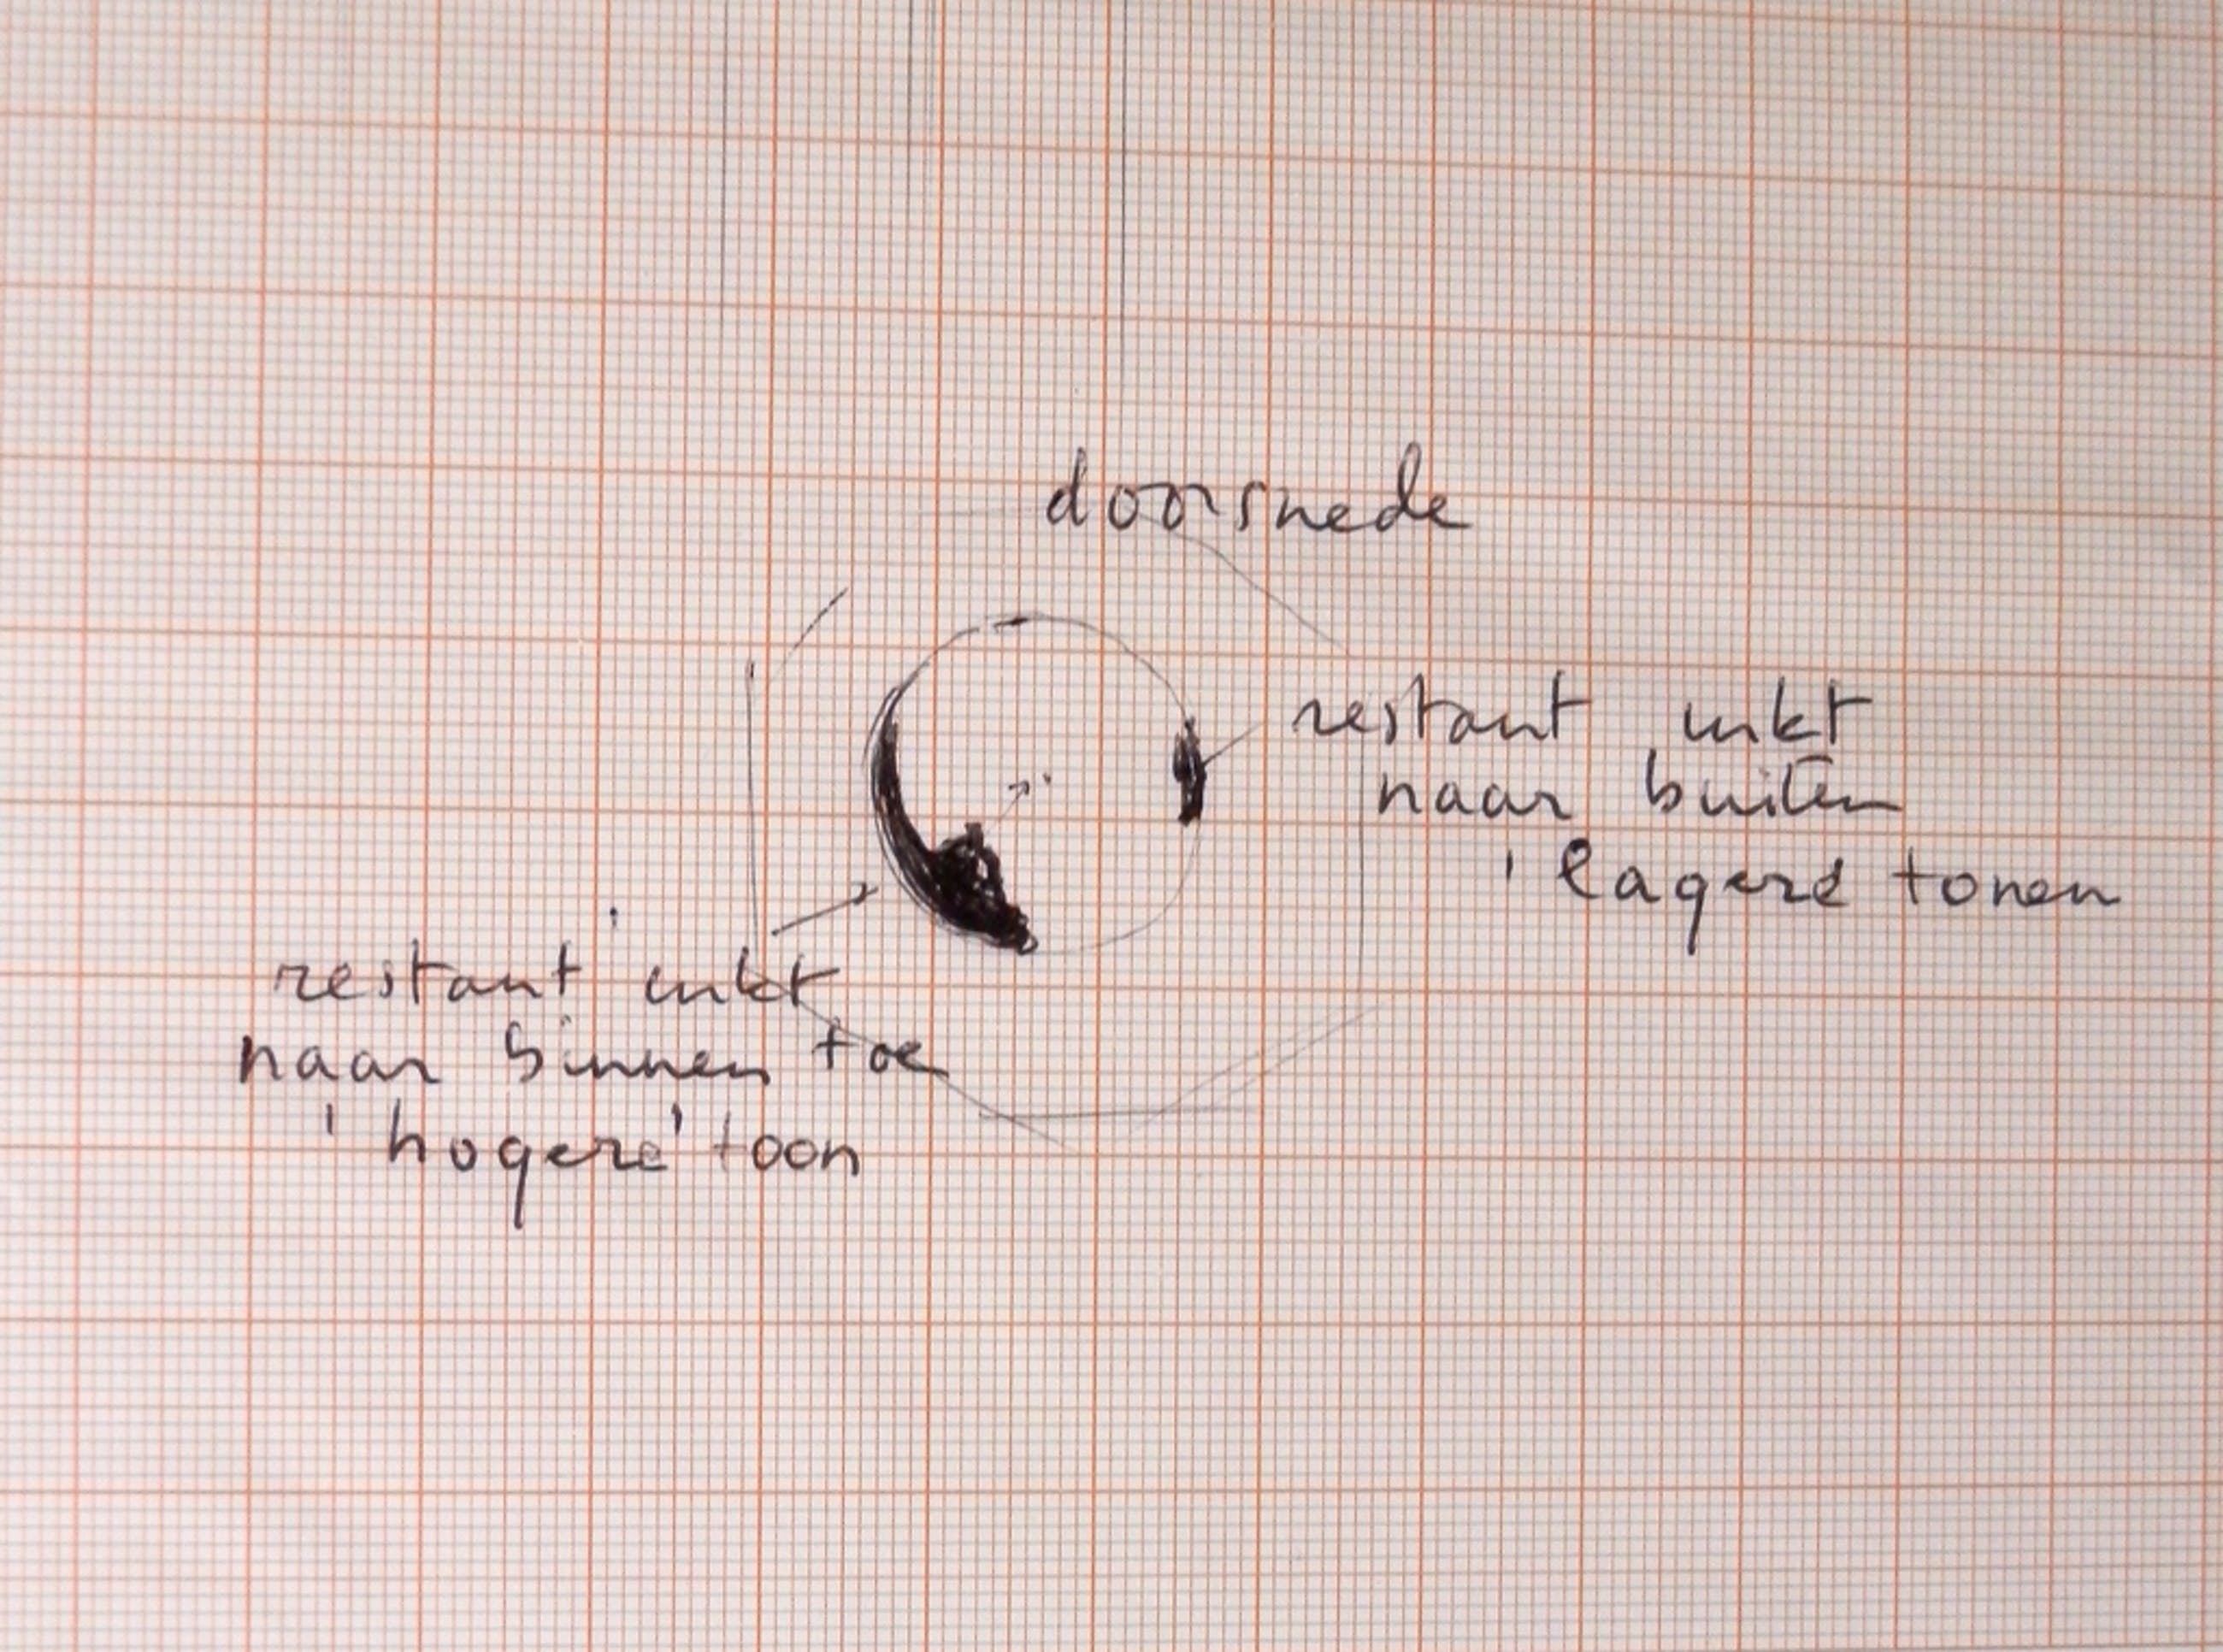 doorsnede
restant inkt
naar buiten
'lagere tonen
restant inkt
naar binnen toe
'hogere' toon